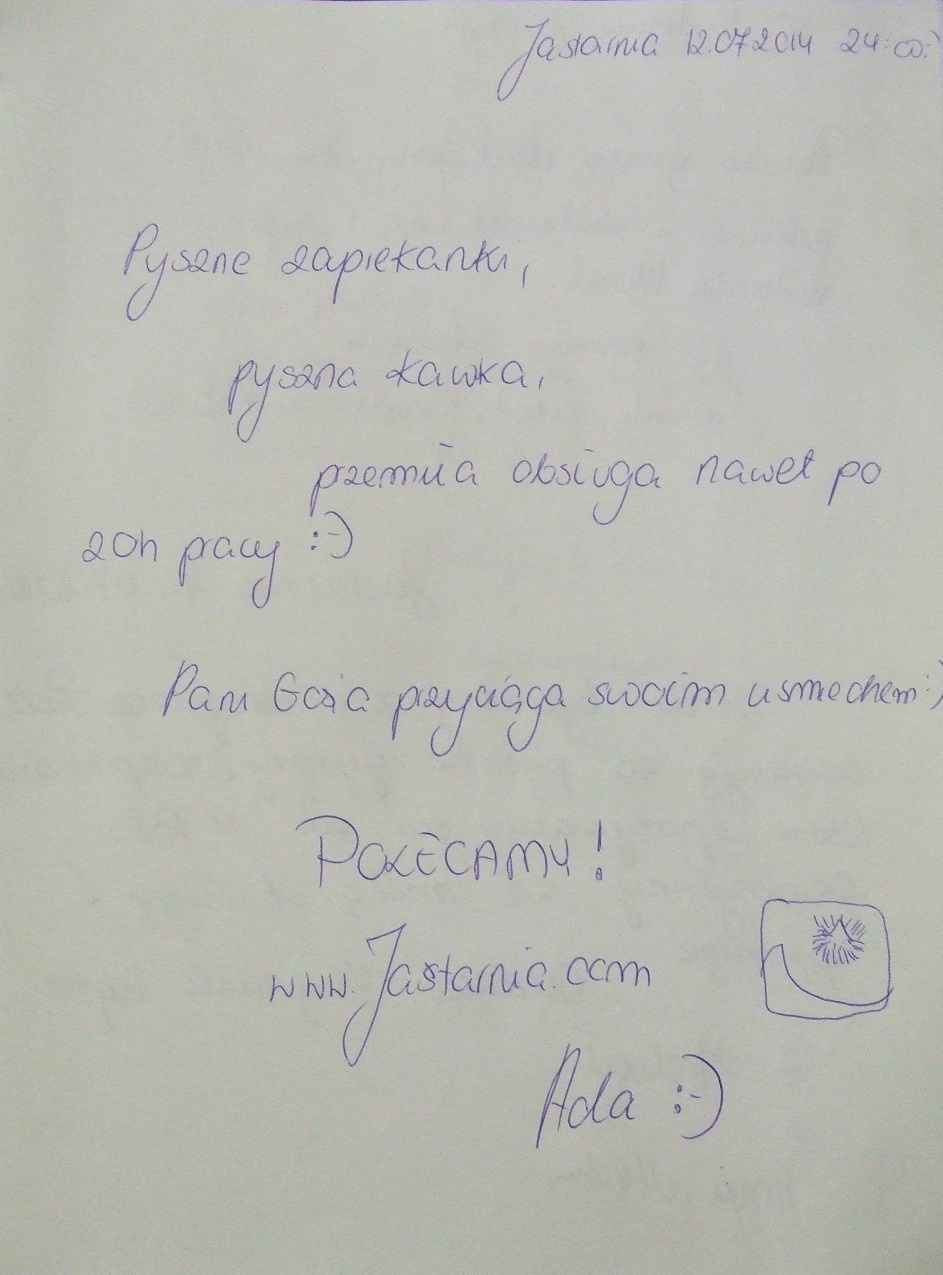 Jastarnia 12.07.2014 24:00:)
Pyszne zapiekanki,
pyszna kawka,
przemiła obsługa nawet po
20h pracy :-)
Pani Gosia przyciąga swoim usmiechem:)
POLECAMY!
www.Jastarnia.com
Ada :-)